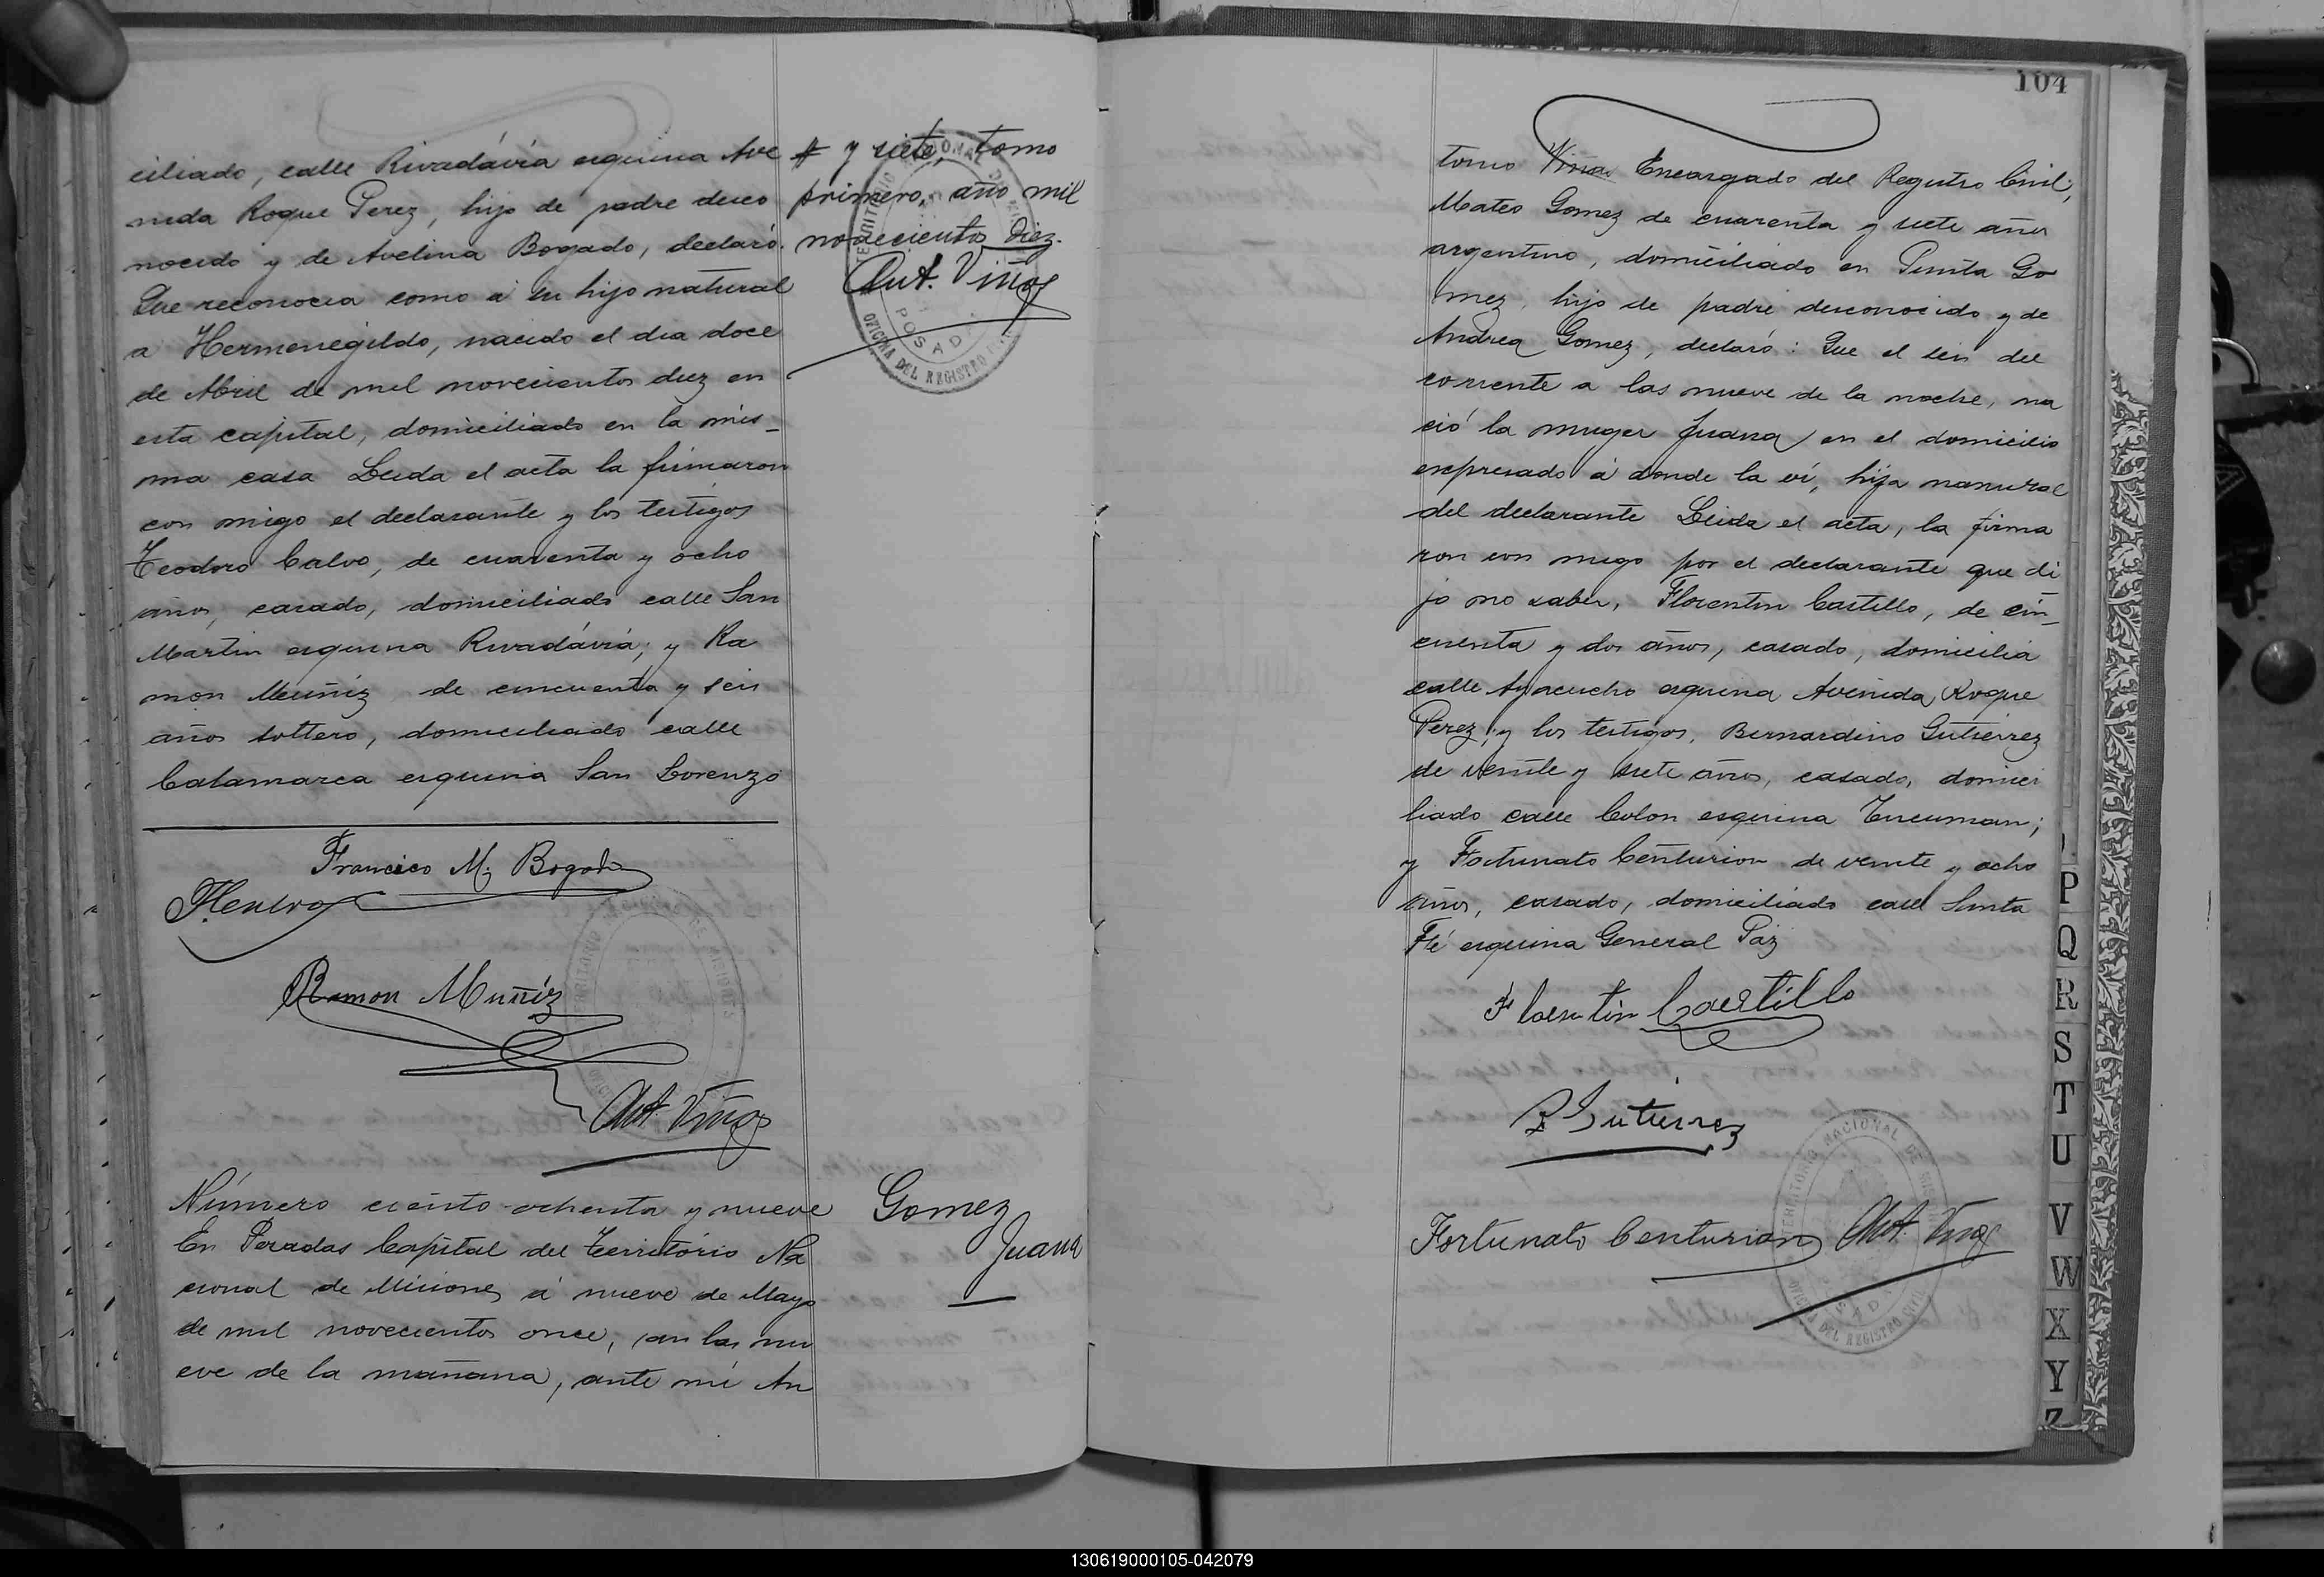 ciliado, calle Rivadávia esquina Ave
nida Roque Perez, hijo de padre desco
nocido y de Avelina Bogado, declaró.
Que reconocia como á su hijo natural
a Hermenegildo, nacido el dia doce
de Abril de mil novecientos diez en
esta capital, domiciliado en la mis_
ma casa Leida el acta la firmaron
con migo el declarante y los testigos
Teodoro Calvo, de cuarenta y ocho
años, casado, domiciliado calle San
Martin esquina Rivadávia; y Ra
mon Muñiz de cincuenta y seis
años soltero, domiciliado calle
Catamarca esquina San Lorenzo
Francisco M. Bogado
Ramon Muñiz
Ant. Viñas
y siete, tomo
primero, año mil
novecientos diez.
Ant. Viñas
POSADAS
OFICINA DEL REGISTRO CIVIL
Número ciento ochenta y nueve
En Posadas Capital del Territorio Na
cional de Misiones á nueve de Mayo
de mil novecientos once, an las nu
eve de la mañana, ante mi An
Gomez
Juana
104
tonio Viñas Encargado del Registro Civil;
Mateo Gomez de cuarenta y siete años
argentino, domiciliado en Punta Go
mez, hijo de padre desconocido y de
Andrea Gomez, declaró: Que el seis del
corriente a las nueve de la noche, na
ció la muger Juana en el domicilio
expresado á donde la ví, hija natural
del declarante Leida el acta, la firma
ron con migo por el declarante que di
jo no saber, Florentin Castillo, de cin_
cuenta y dos años, casado, domicilia
calle Ayacucho esquina Avenida Roque
Perez; y los testigos, Bernardino Gutierrez
de veinte y siete años, casado, domici
liado calle Colon esquina Tucuman;
y Fortunato Centurion de veinte y ocho
años, casado, domiciliado calle Santa
Fé esquina General Paz
Florentin Castillo
B Gutierrez
Fortunato Centurion Ant. Viñas
TERRITORIO NACIONAL DE MISIONES
OFICINA DEL REGISTRO CIVIL
P
Q
R
S
T
U
V
W
X
Y
Z
130619000105-042079